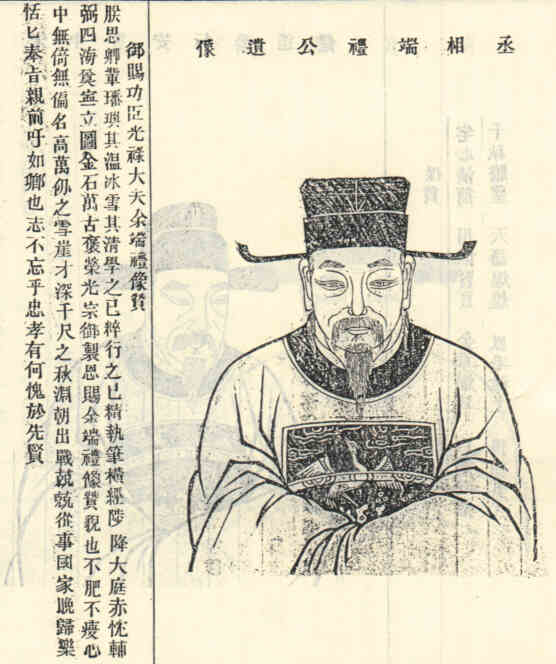 丞相端禮公遺像
御賜功臣光祿大夫余端禮像贊
朕思卿輩璠璵其温冰雪其清學之已粹行之已精執筆橫經陟降大庭赤忱輔
弼四海奠寧立圖金石萬古褒榮光宗御製恩賜余端禮像贊貌也不肥不瘦心
中無倚無偏名高萬仞之雪崖才深千尺之秋淵朝出戰兢兢從事國家晚歸樂
恬匕奉旨親前吁如卿也志不忘乎忠孝有何愧於先賢